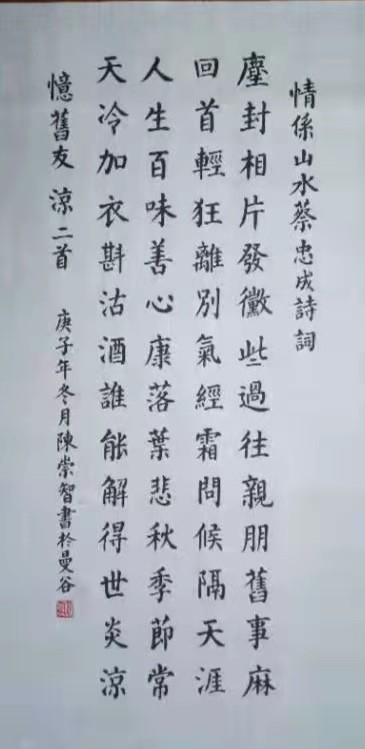 情係山水蔡忠成詩詞
塵封相片發黴些過往親朋舊事麻
回首輕狂離別氣經霜問候隔天涯
人生百味善心康落葉悲秋季節常
天冷加衣斟沽酒誰能解得世炎涼
憶舊友 涼二首 庚子年冬月陳崇智書於曼谷